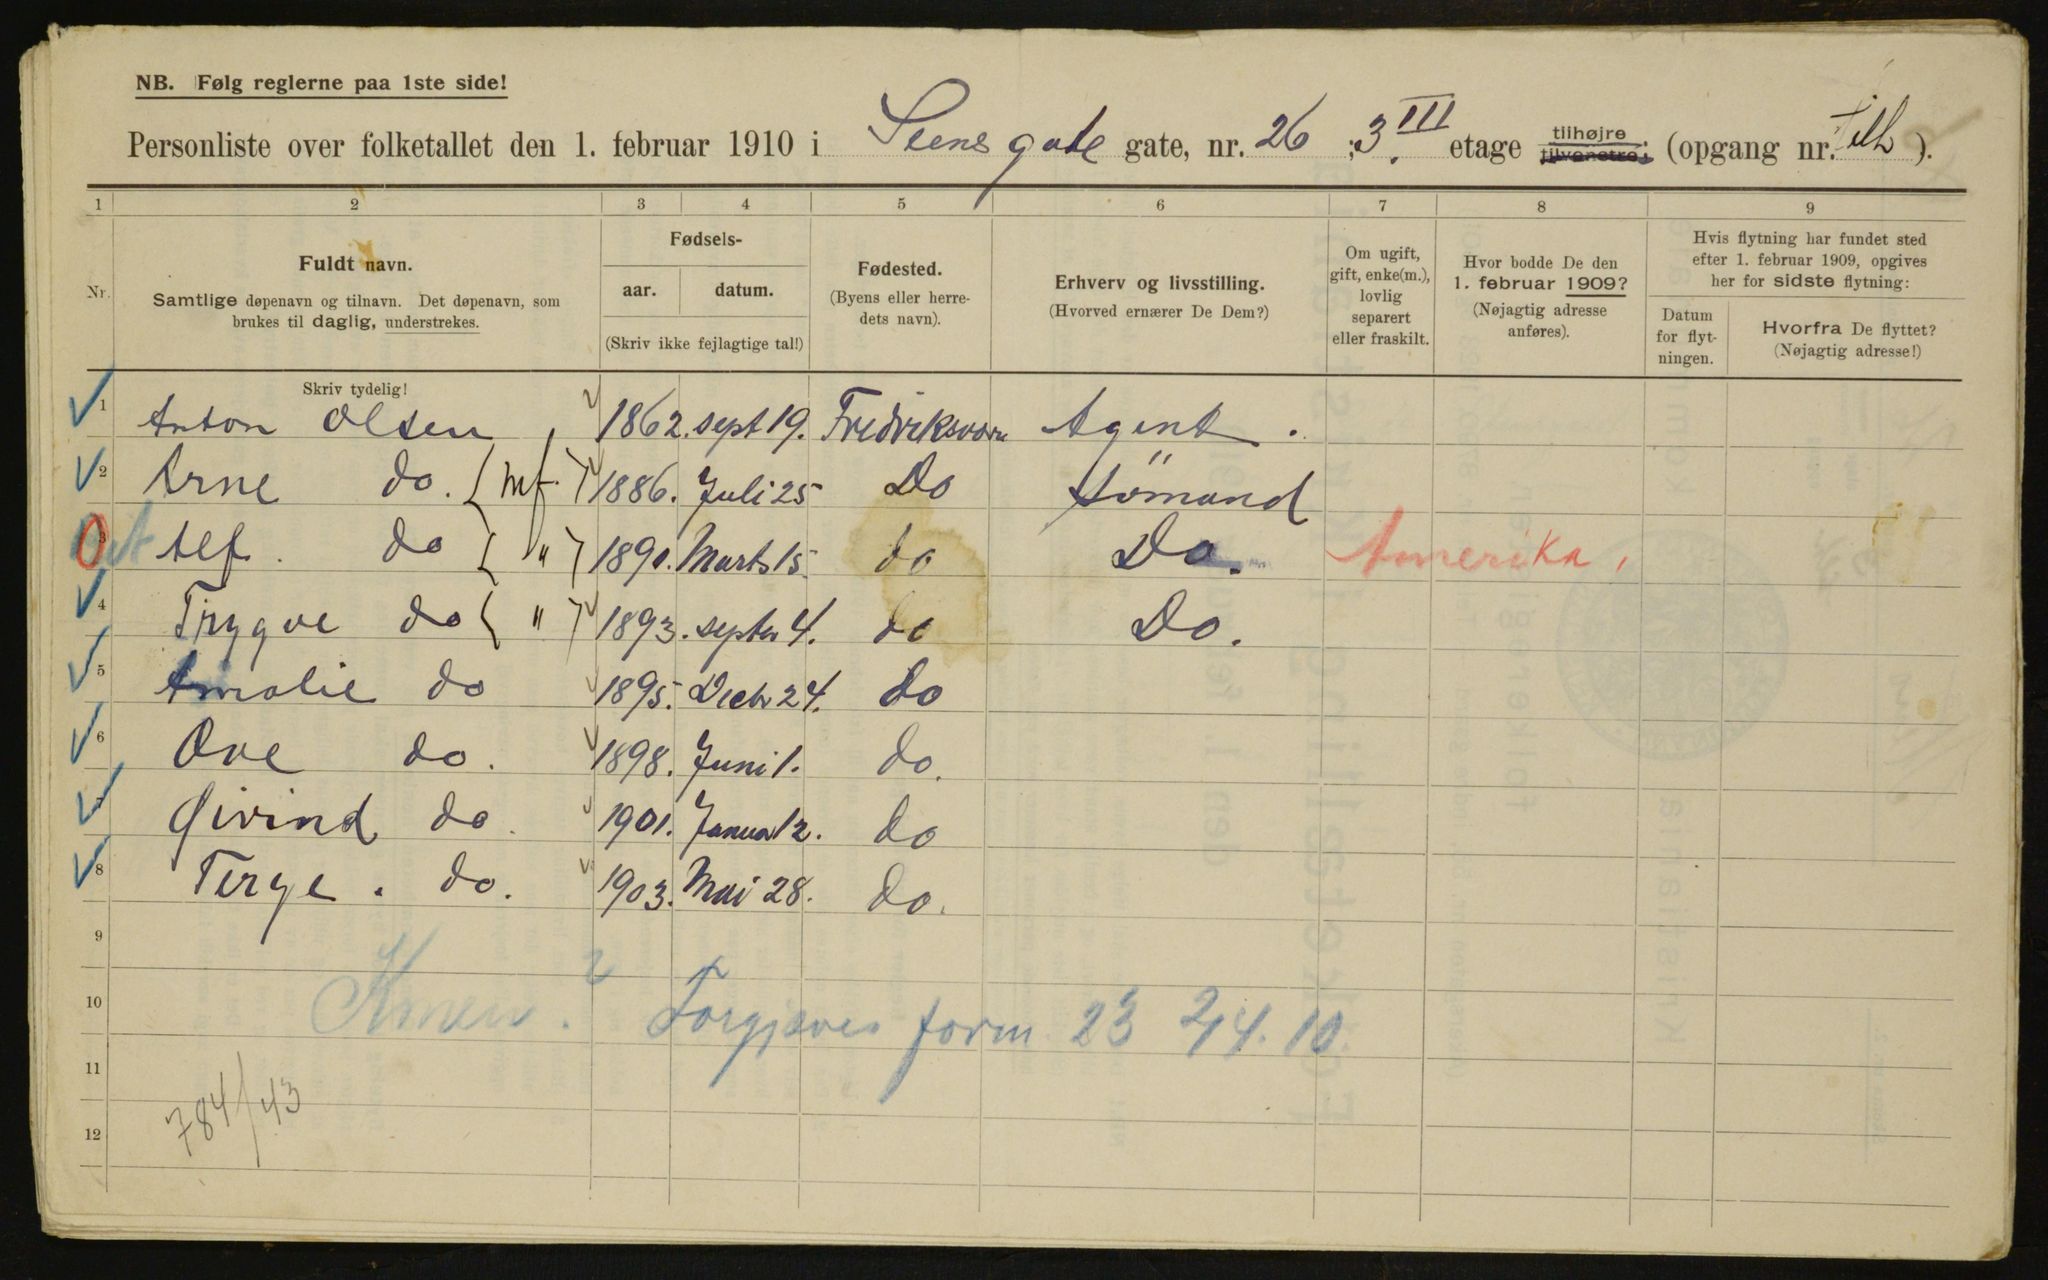 NB. Følg reglerne paa 1ste side!
Personliste over folketallet den 1. februar 1910 i Steensgate gate, nr. 26 ; 3. III etage tilhøjre tilvenstre; (opgang nr. Tilh ).
1 2 3 4 5 6 7 8 9
Nr.
Fuldt navn.
Samtlige døpenavn og tilnavn. Det døpenavn, som
brukes til daglig, understrekes.
Skriv tydelig!
Fødsels-
aar. datum.
(Skriv ikke fejlagtige tal!)
Fødested.
(Byens eller herre-
dets navn).
Erhverv og livsstilling.
(Hvorved ernærer De Dem?)
Om ugift,
gift, enke(m.),
lovlig
separert
eller fraskilt.
Hvor bodde De den
1. februar 1909?
(Nøjagtig adresse
anføres).
Hvis flytning har fundet sted
efter 1. februar 1909, opgives
her for sidste flytning:
Datum
for flyt-
ningen.
Hvorfra De flyttet?
(Nøjagtig adresse!)
1 Anton Olsen 1862. sept 19. Fredriksværn Agent.
2 Arne do. (mf.) 1886. Juli 25 Do Sømand
3 Alf. do ( " ) 1890. Marts 15. do Do. Amerika
4 Trygve do ( " ) 1893. septbr 4. do Do.
5 Amalie do 1895. Decbr 24. do
6 Ove do. 1898. Juni 1. do.
Øivind do. 1901. Januar 12. do
8 Terge. do. 1903. Mai 28. do.
9
10 Forgjæves form 23 2/4. 10
11
784/43
12